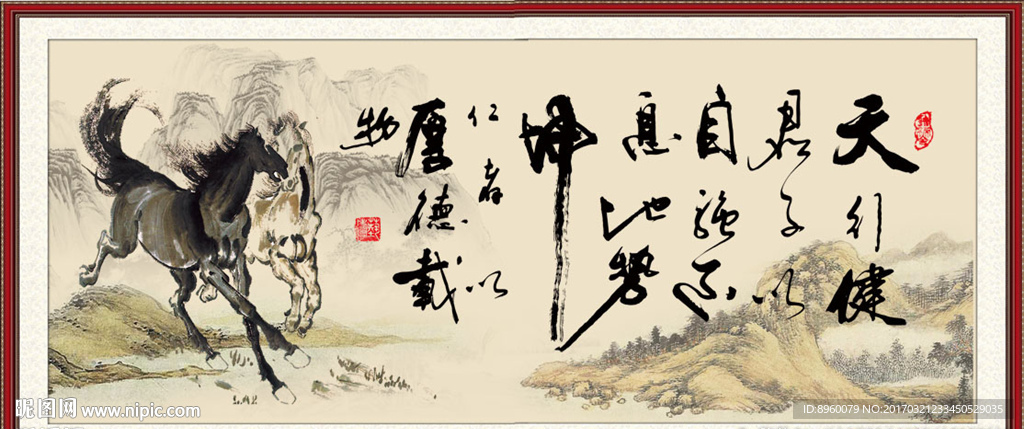 天行健
君子以
自強不
息地勢
坤
仁者以
厚德載
物
昵图网 www.nipic.com
ID:8960079 NO:20170321233450529035